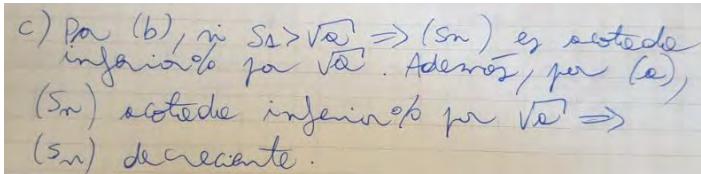 c) Por (b), si S₁>√a ⇒ (Sn) es acotada
inferior% por √a. Además, por (a),
(Sn) acotada inferior% por √a ⇒
(Sn) decreciente.